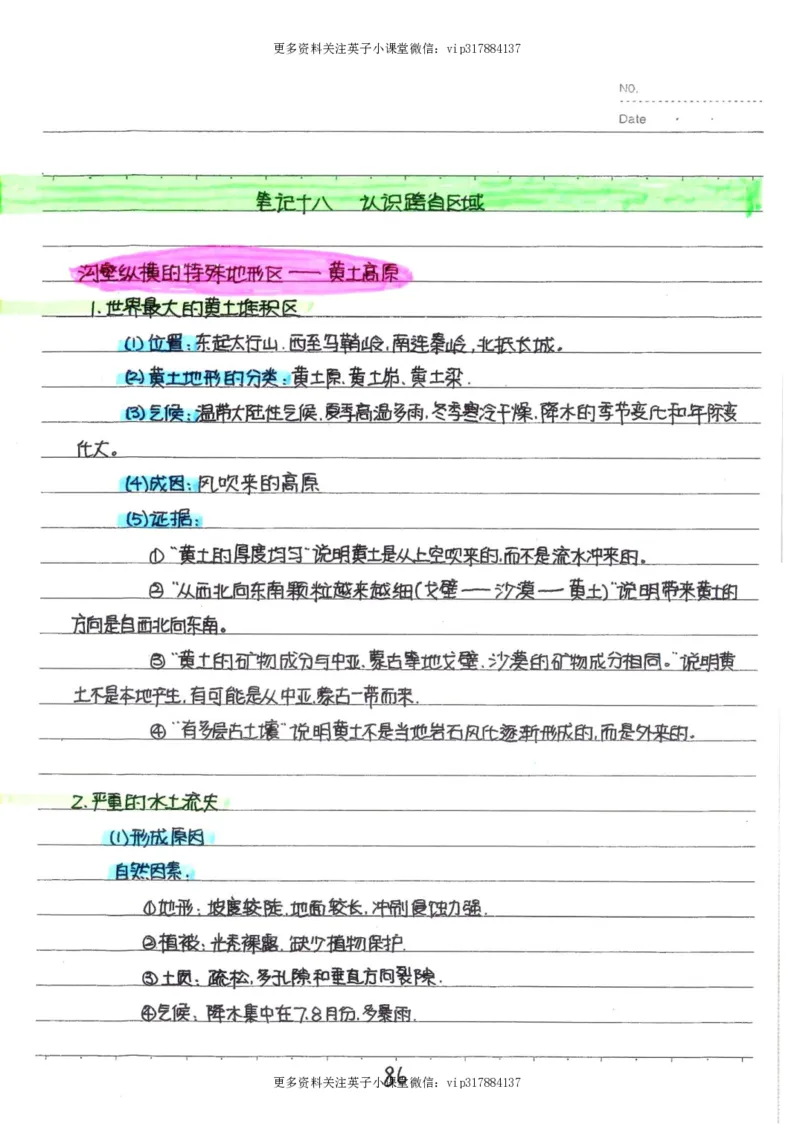 更多资料关注英子小课堂微信：vip317884137
NO.
Date
笔记十八 认识跨省区域
沟壑纵横的特殊地形区——黄土高原
1.世界最大的黄土堆积区
(1)位置：东起太行山.西至乌鞘岭,南连秦岭,北抵长城。
(2)黄土地形的分类：黄土原、黄土峁、黄土梁.
(3)气候：温带大陆性气候.夏季高温多雨,冬季寒冷干燥,降水的季节变化和年际变
化大。
(4)成因：风吹来的高原
(5)证据：
①“黄土的厚度均匀”说明黄土是从上空吹来的,而不是流水冲来的。
②“从西北向东南颗粒越来越细(戈壁——沙漠——黄土)”说明带来黄土的
方向是自西北向东南。
③“黄土的矿物成分与中亚、蒙古等地戈壁、沙漠的矿物成分相同。”说明黄
土不是本地产生,有可能是从中亚、蒙古一带而来.
④“有多层古土壤”说明黄土不是当地岩石风化逐渐形成的,而是外来的.
2.严重的水土流失
(1)形成原因
自然因素：
①地形：坡度较陡.地面较长,冲刷侵蚀力强.
②植被：光秃裸露.缺少植物保护.
③土质：疏松,多孔隙和垂直方向裂隙.
④气候：降水集中在7.8月份.多暴雨.
86
更多资料关注英子小课堂微信：vip317884137